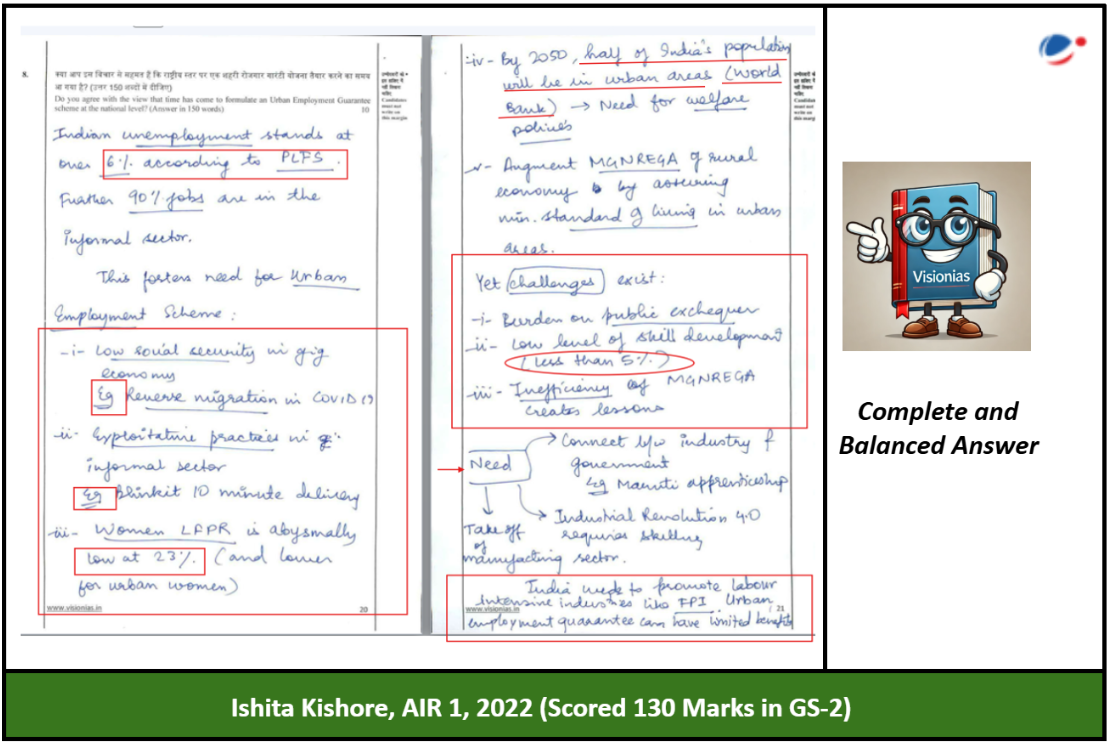 8.
क्या आप इस विचार से सहमत हैं कि राष्ट्रीय स्तर पर एक शहरी रोजगार गारंटी योजना तैयार करने का समय
आ गया है? (उत्तर 150 शब्दों में दीजिए)
Do you agree with the view that time has come to formulate an Urban Employment Guarantee
scheme at the national level? (Answer in 150 words)
10
उम्मीदवारों को
इस हाशिए में
नहीं लिखना
चाहिए
Candidates
must not
write on
this margin
Indian unemployment stands at
over 6% according to PLFS.
Further 90% jobs are in the
informal sector.
This fosters need for Urban
Employment Scheme:
-i- Low social security in gig
economy
Eg Reverse migration in COVID 19
-ii- Exploitative practices in
informal sector
Eg Blinkit 10 minute delivery
-iii- Women LFPR is abysmally
low at 23%. (and lower
for urban women)
www.visionias.in
20
-iv- By 2050, half of India's population
will be in urban areas (World
Bank) → Need for welfare
policies
-v- Augment MGNREGA of rural
economy by assuring
min. standard of living in urban
areas.
Yet challenges exist:
-i- Burden on public exchequer
-ii- Low level of skill development
(less than 5%)
-iii- Inefficiency of MGNREGA
creates lessons
Need
Connect b/w industry &
government
Eg Maruti apprenticeship
Industrial Revolution 4.0
requires skilling
Take off
of
manufacting sector.
India needs to promote labour
intensive industries like FPI. Urban
employment guarantee can have limited benefits
www.visionias.in
21
उम्मीदवारों को
इस हाशिए में
नहीं लिखना
चाहिए
Candidates
must not
write on
this margin
Visionias
Complete and
Balanced Answer
Ishita Kishore, AIR 1, 2022 (Scored 130 Marks in GS-2)